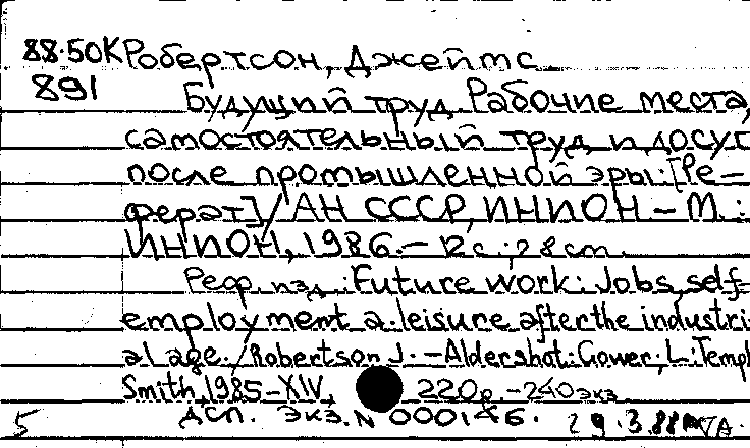 88.50К Робертсон, Джеймс
891
Будущий труд. Рабочие места,
самостоятельный труд и досуг
после промышленной эры: [Ре-
ферат] / АН СССР, ИНИОН - М.:
ИНИОН, 1986. - 12 с.; 28 см.
Реф. изд.: Future work: Jobs, self-
employment a. leisure after the industri
al age. / Robertson J. - Aldershot: Gower; L.: Templ
Smith, 1985 - XIV, 220 p. - 240 экз.
ДСП. Экз. N 000146.
5 29.3.88